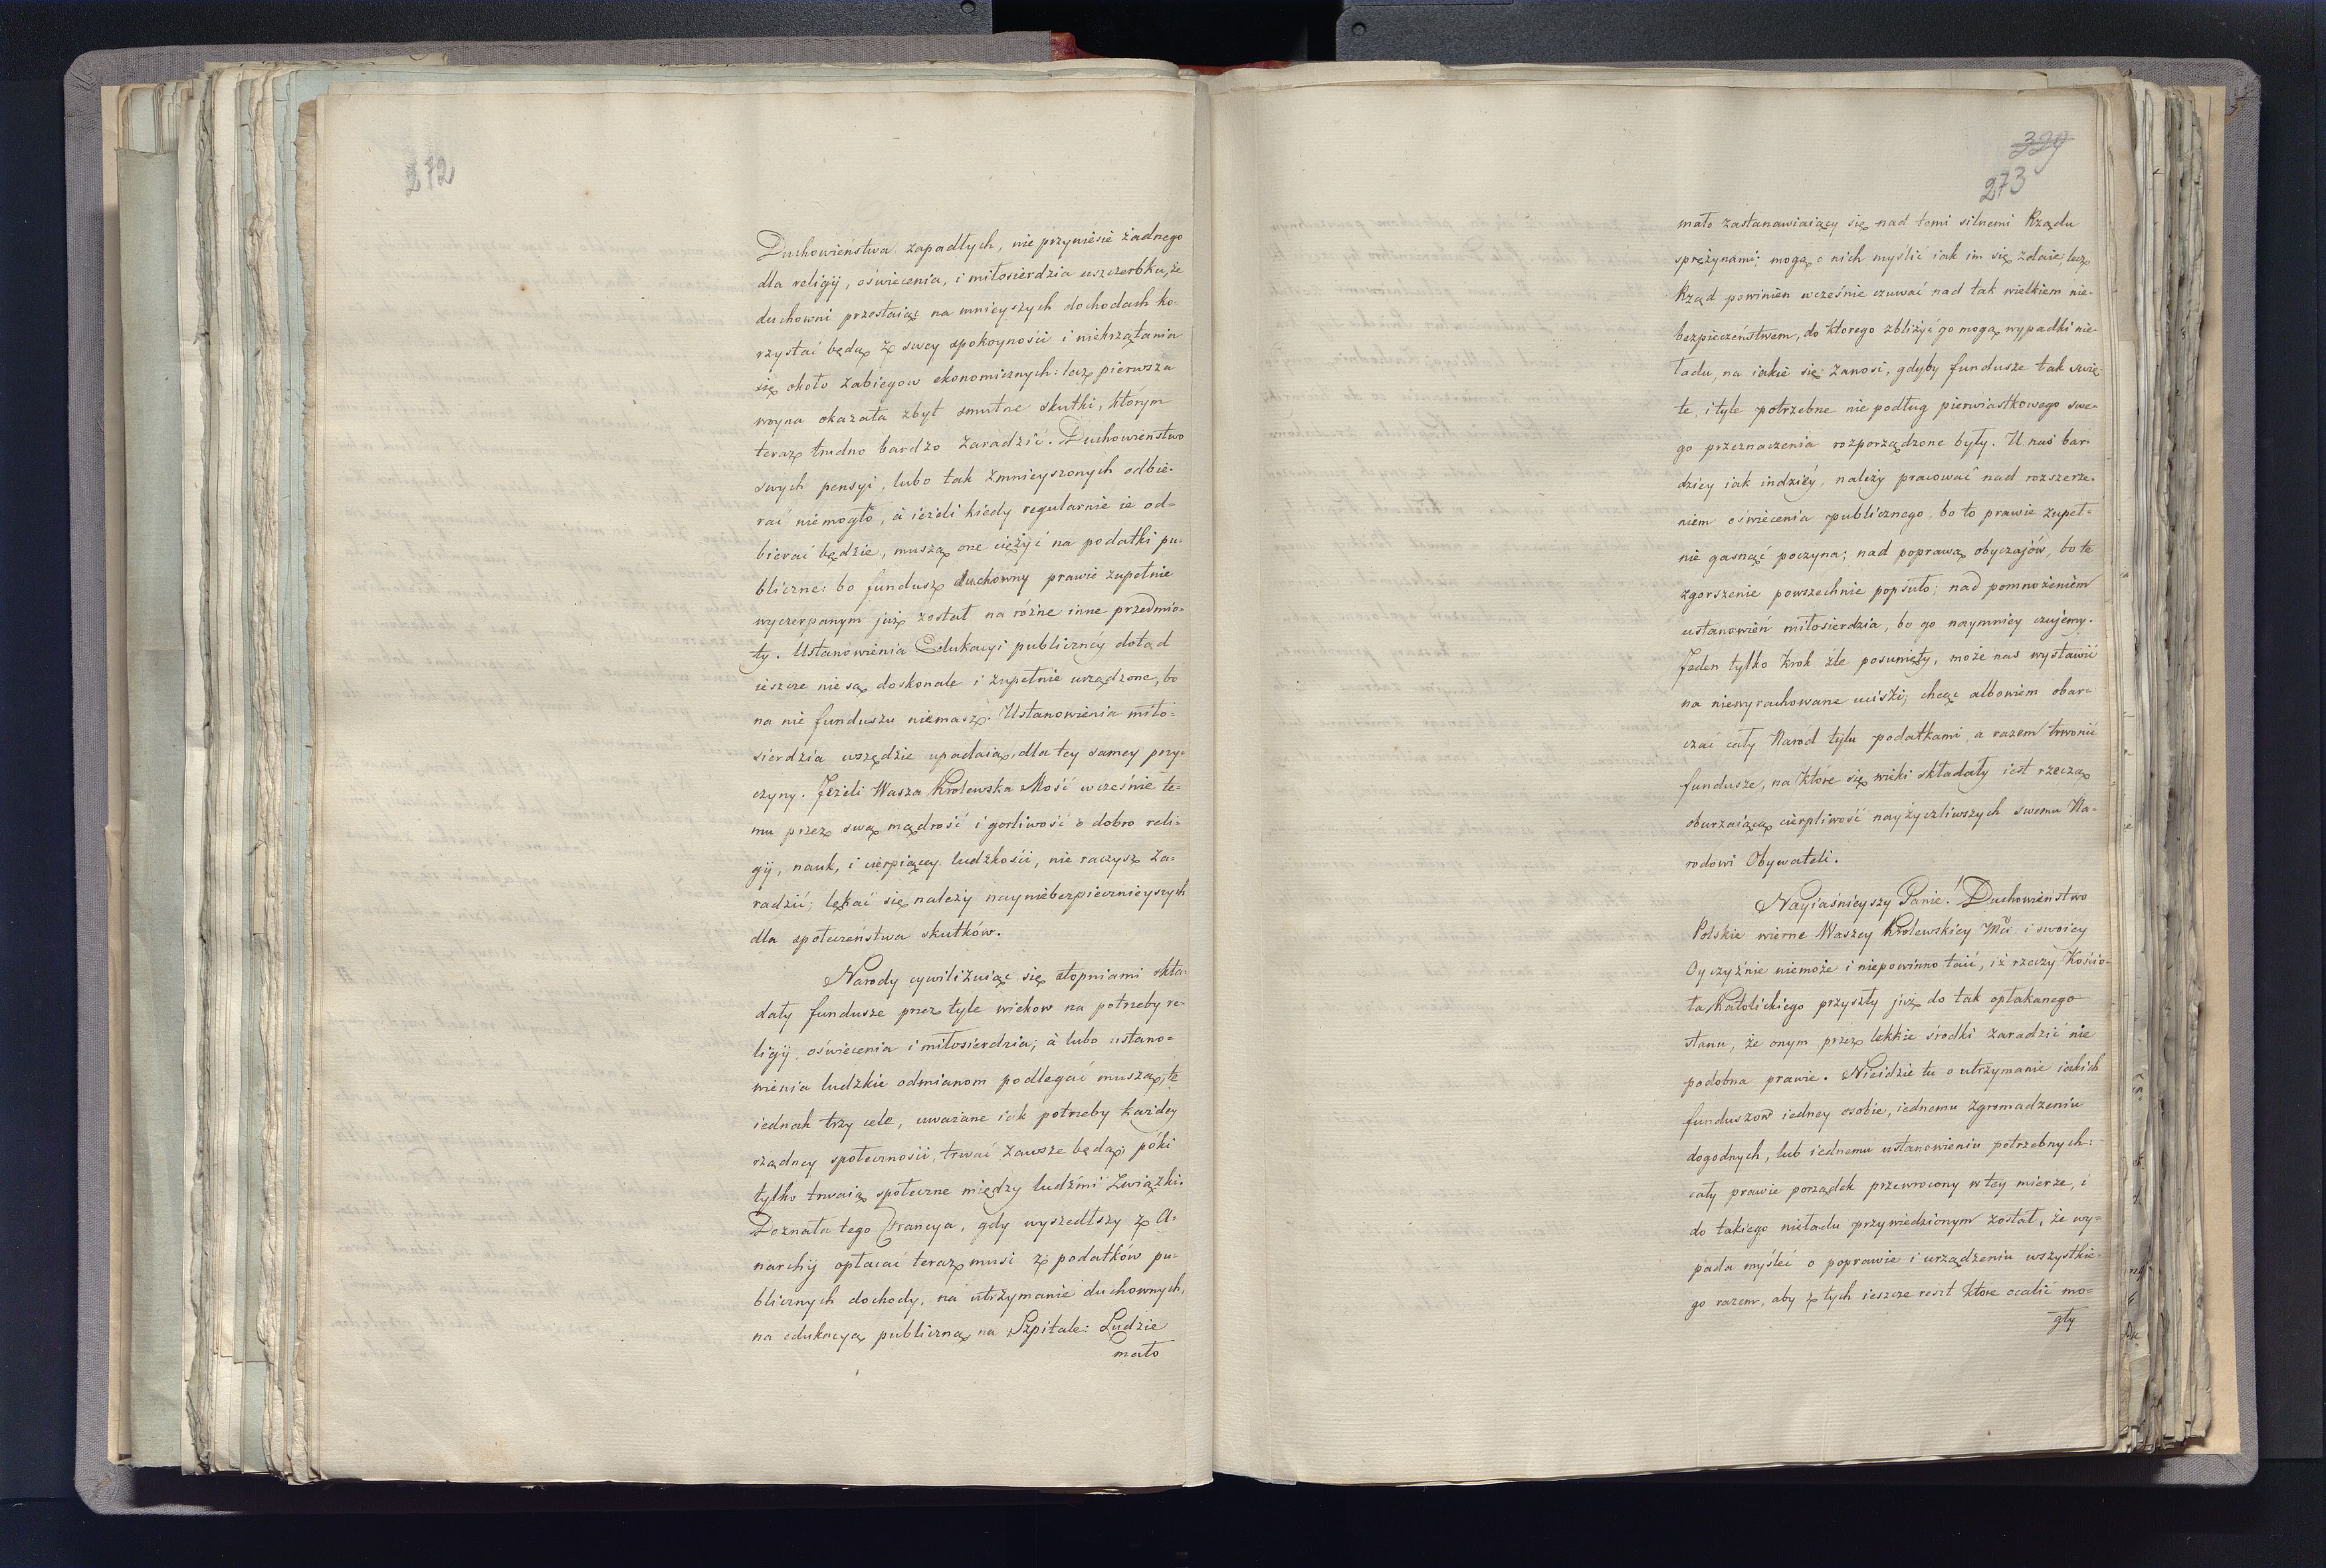 272
Duchowienstwa zapadłych, nie przyniesie żadnego
dla religij, oświecenia, i miłosierdzia uszczerbku, że
duchowni przestaiąc na mnieyszych dochodach ko-
rzystać będą z swey spokoyności i niekrzątania
się około zabiegow ekonomicznych: lecz pierwsza
woyna okazała zbyt smutne skutki, którym
teraz trudno bardzo zaradzić. Duchowieństwo
swych pensyi, lubo tak zmnieyszonych odbie-
rać niemogło, à ieżeli kiedy regularnie ie od-
bierać będzie, muszą one ciężyć na podatki pu-
bliczne: bo fundusz duchowny prawie zupełnie
wyczerpanym już został na różne inne przedmio-
ty. Ustanowienia Edukacyi publiczney dotąd
ieszcze nie są doskonale i zupełnie urządzone, bo
na nie funduszu niemasz. Ustanowienia miło-
sierdzia wszędzie upadaią, dla tey samey przy-
czyny. Jeżeli Wasza Krolewska Mość wcześnie te-
mu przez swą mądrość i gorliwość o dobro reli-
gij, nauk, i cierpiącey ludzkości, nie raczysz za-
radzić; lękać się należy nayniebezpiecznieyszych
dla społeczeństwa skutków.
Narody cywilizuiąc się stopniami skła-
dały fundusze przez tyle wiekow na potrzeby re-
ligij, oświecenia i miłosierdzia; à lubo ustano-
wienia ludzkie odmianom podlegać muszą, te
iednak trzy cele, uważane iak potrzeby każdey
rządney społeczności, trwać zawsze będą, póki
tylko trwaią społeczne między ludźmi związki.
Doznała tego Francya, gdy wyszedłszy z A-
narchij opłacać teraz musi z podatków pu-
blicznych dochody, na utrzymanie duchownych,
na edukacyą publiczną, na Szpitale: Ludzie
mało
329
273
mało zastanawiaiący się nad temi silnemi Rządu
sprężynami; mogą o nich myślić iak im się zdaie, lecz
Rząd powinien wcześnie czuwać nad tak wielkiem nie-
bezpieczeństwem, do ktorego zbliżyć go mogą wypadki nie-
ładu, na iakie się zanosi, gdyby fundusze tak świę-
te, i tyle potrzebne nie podług pierwiastkowego swe-
go przeznaczenia rozporządzone były. U nas bar-
dziey iak indziéy, należy pracować nad rozszerze-
niem oświecenia publicznego, bo to prawie zupeł-
nie gasnąć poczyna; nad poprawą obyczajów, bo te
zgorszenie powszechnie popsuło; nad pomnożeniem
ustanowień miłosierdzia, bo go naymniey czujemy.
Jeden tylko krok źle posunięty, może nas wystawić
na niewyrachowane uciski; chcąc albowiem obar-
czać cały Naród tylu podatkami, a razem trwonić
fundusze, na które się wieki składały iest rzeczą
oburzaiącą cierpliwość nayżyczliwszych swemu Na-
rodowi Obywateli.
Nayiaśnieyszy Panie! Duchowieństwo
Polskie wierne Waszey Królewskiey Mci i swoiey
Oyczyźnie niemoże i niepowinno taić, iż rzeczy Kościo-
ła Katolickiego przyszły już do tak opłakanego
stanu, że onym przez lekkie środki zaradzić nie
podobna prawie. Nieidzie tu o utrzymanie iakich
funduszow iedney osobie, iednemu zgromadzeniu
dogodnych, lub iednemu ustanowieniu potrzebnych:
cały prawie porządek przewrocony w tey mierze, i
do takiego nieładu przywiedzionym został, że wy-
pada myśleć o poprawie i urządzeniu wszystkie-
go razem, aby z tych ieszcze reszt które ocalić mo-
gły